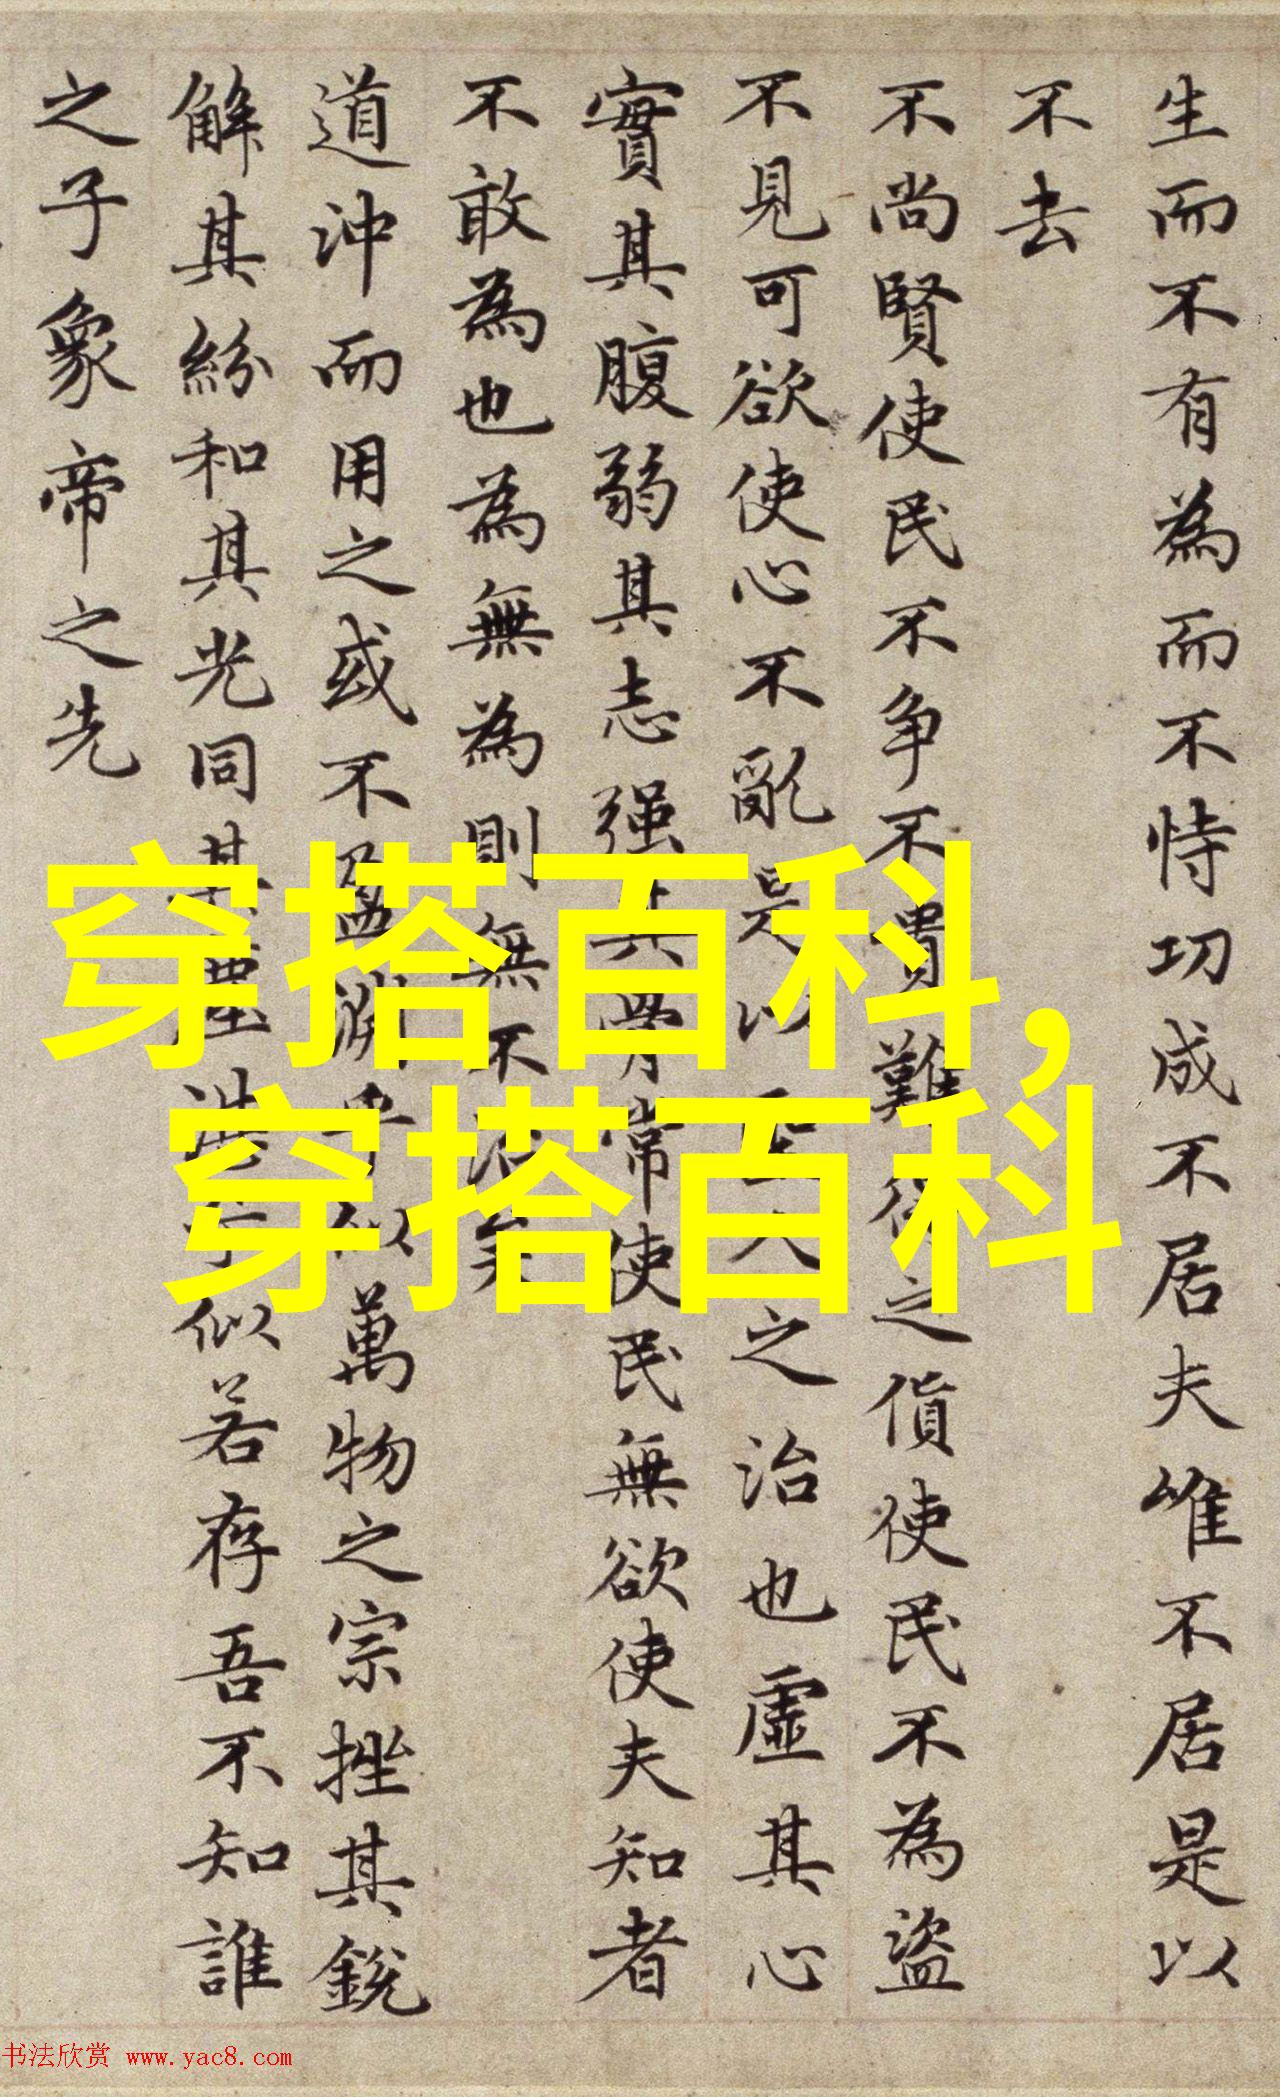 生而不有為而不恃功成不居夫唯不居是以
不去
不尚賢使民不争不貴難得之貨使民不為盜
不見可欲使心不亂是以人之治也虛其心
實其腹弱其志强其骨常使民無欲使夫知者
不敢為也為無為則無不治矣
道沖而用之或不盈淵乎似萬物之宗挫其銳
解其紛和其光同其塵湛似若存吾不知誰
之子象帝之先
穿搭百科,
穿搭百科
书法欣赏 www.yac8.com